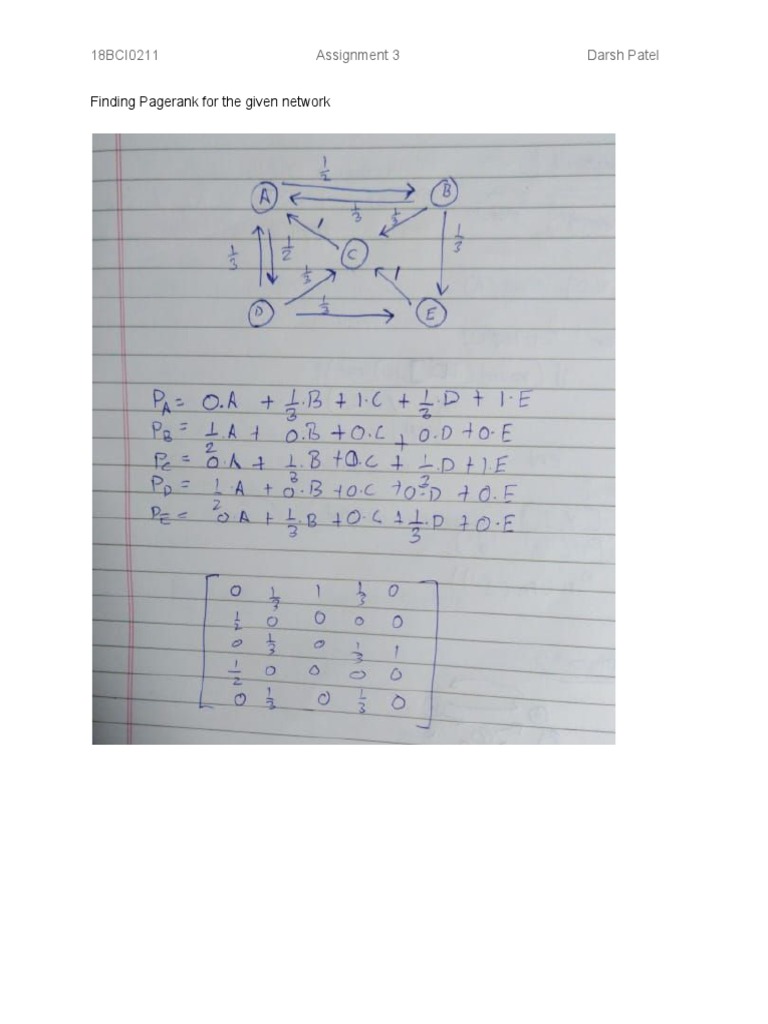 18BCI0211 Assignment 3 Darsh Patel
Finding Pagerank for the given network
1/2
A B
1/3 1/3
1 1/3
1/3 1/2 C
1/3 1
1/3
D E
P_A = 0.A + 1/3.B + 1.C + 1/3.D + 1.E
P_B = 1/2.A + 0.B + 0.C + 0.D + 0.E
P_C = 0.A + 1/3.B + 0.C + 1/3.D + 1.E
P_D = 1/2.A + 0.B + 0.C + 0.D + 0.E
P_E = 0.A + 1/3.B + 0.C + 1/3.D + 0.E
0 1/3 1 1/3 0
1/2 0 0 0 0
0 1/3 0 1/3 1
1/2 0 0 0 0
0 1/3 0 1/3 0